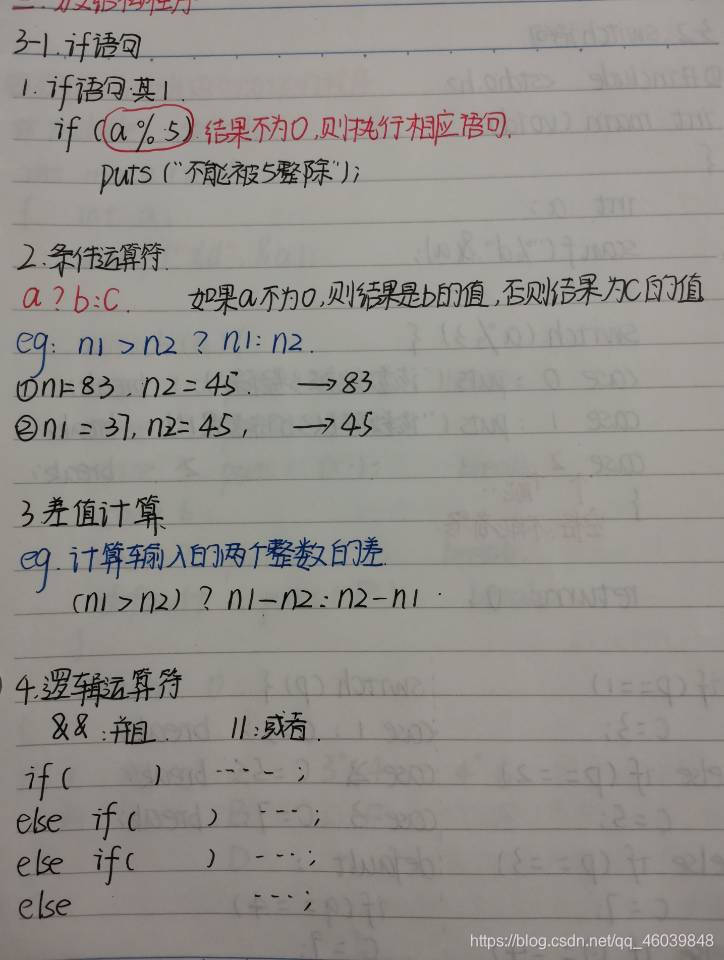 3-1. if语句
1. if语句·其1.
if (a%5) 结果不为0,则执行相应语句.
puts ("不能被5整除");
2.条件运算符.
a?b:c. 如果a不为0,则结果是b的值,否则结果为C的值
eg: n1>n2 ? n1:n2.
①n1=83, n2=45. →83
②n1=37, n2=45, →45
3.差值计算.
eg.计算输入的两个整数的差.
(n1>n2) ? n1-n2:n2-n1.
4.逻辑运算符
&&:并且. ||:或者.
if( ) ----;
else if( ) ---;
else if( ) ---;
else ---;
https://blog.csdn.net/qq_46039848